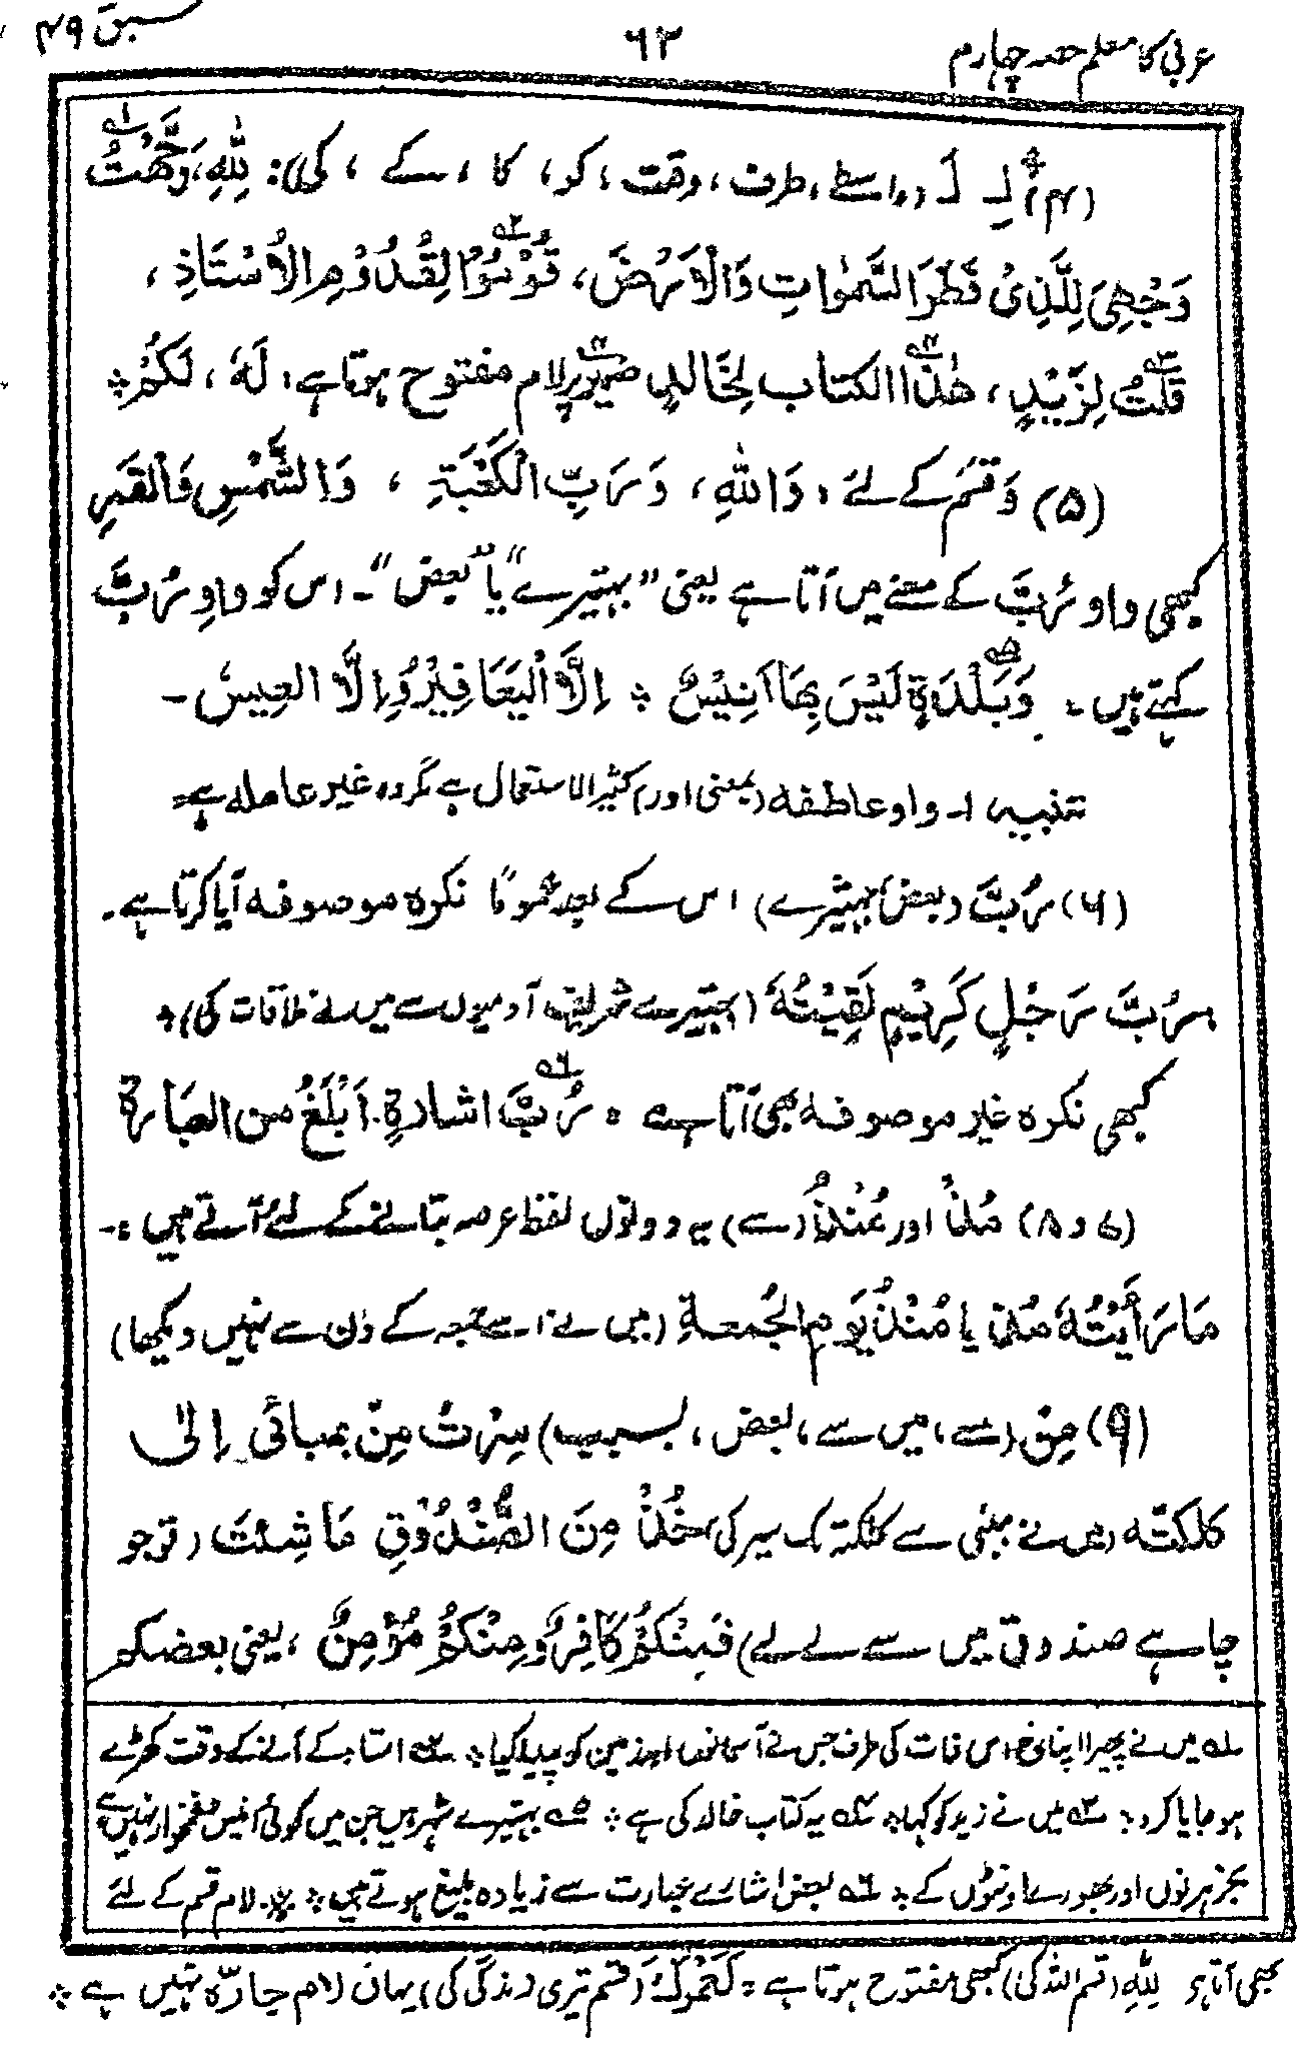 عربی کا معلم حصہ چہارم ۶۲ سبق ۴۹
(۴) لِـ لَـ (واسطے، طرف، وقت، کو، کا، کے، کی): لِلّٰہِ، وَجَّهْتُ
وَجْهِیَ لِلَّذِیْ فَطَرَ السَّمٰوَاتِ وَالْاَرْضَ، قُوْمُوْا لِقُدُوْمِ الْاُسْتَاذِ،
قُلْتُ لِزَیْدٍ، هٰذَا الکتاب لِخَالدٍ ضمیر پر لام مفتوح ہوتا ہے: لَهٗ، لَکُمْ ؞
(۵) وَ قسَم کے لئے: وَاللّٰہِ، وَرَبِّ الْکَعْبَۃِ، وَالشَّمْسِ وَالْقَمَرِ
کبھی واو رُبَّ کے معنے میں آتا ہے یعنی "بہتیرے" یا "بعض"۔ اس کو واوِ رُبَّ
کہتے ہیں۔ وَبَلْدَۃٍ لَیْسَ بِهَا اَنِیْسٌ ؞ اِلَّا الْیَعَافِیْرُ وَاِلَّا العِیسٗ ۔
تنبیہ ۱۔ واو عاطفہ (بمعنی اور) کثیر الاستعمال ہے مگر وہ غیر عاملہ ہے۔
(۶) رُبَّ (بعض، بہتیرے) اس کے بعد عموماً نکرہ موصوفہ آیا کرتا ہے۔
رُبَّ رَجُلٍ کَرِیْمٍ لَقِیْتُهٗ (بہتیرے شریف آدمیوں سے میں نے ملاقات کی)؞
کبھی نکرہ غیر موصوفہ بھی آتا ہے۔ رُبَّ اشارۃٍ اَبْلَغُ من العبَارۃ
(۷ و ۸) مُذْ اور مُنْذُ (سے) یہ دونوں لفظ عرصہ بتانے کے لئے آتے ہیں:۔
مَا رَاَیْتُهٗ مُذْ یا مُنْذُ یَوْمِ الجُمعۃِ (میں نے اسے جمعہ کے دن سے نہیں دیکھا)
(۹) مِنْ (سے، میں سے، بعض، بسبب) سِرْتُ مِنْ بمبائی اِلیٰ
کلکتّہ (میں نے بمبئی سے کلکتہ تک سیر کی) خُذْ مِنَ الصُّنْدُوْقِ مَا شِئْتَ (تو جو
چاہے صندوق میں سے لے لے) فَمِنْکُمْ کَافِرٌ وَمِنْکُمْ مُؤْمِنٌ، یعنی بعضکم
۱؎ میں نے پھیرا اپنا رخ اس ذات کی طرف جس نے آسمانوں اور زمین کو پیدا کیا؞ ۲؎ استاد کے آنے کے وقت کھڑے
ہو جایا کرو؞ ۳؎ میں نے زید کو کہا؞ ۴؎ یہ کتاب خالد کی ہے؞ ۵؎ بہتیرے شہر ہیں جن میں کوئی انیس غمخوار نہیں ہے
بجز ہرنوں اور بھورے اونٹوں کے؞ ۶؎ بعض اشارے عبارت سے زیادہ بلیغ ہوتے ہیں؞ لام قسم کے لئے
بھی آتا ہے لِلّٰہِ (قسم اللہ کی) کبھی مفتوح ہوتا ہے: لَعَمْرُکَ (قسم تیری زندگی کی) یہاں لام جارّہ نہیں ہے؞